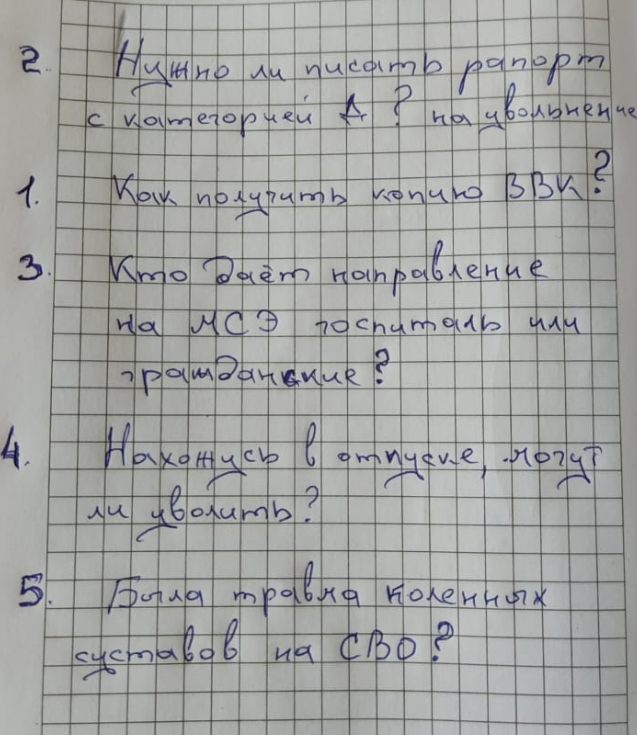 2. Нужно ли писать рапорт
с категорией Д? на увольнение
1. Как получить копию ВВК?
3. Кто даёт направление
на МСЭ госпиталь или
гражданские?
4. Нахожусь в отпуске, могут
ли уволить?
5. Была травма коленных
суставов на СВО?